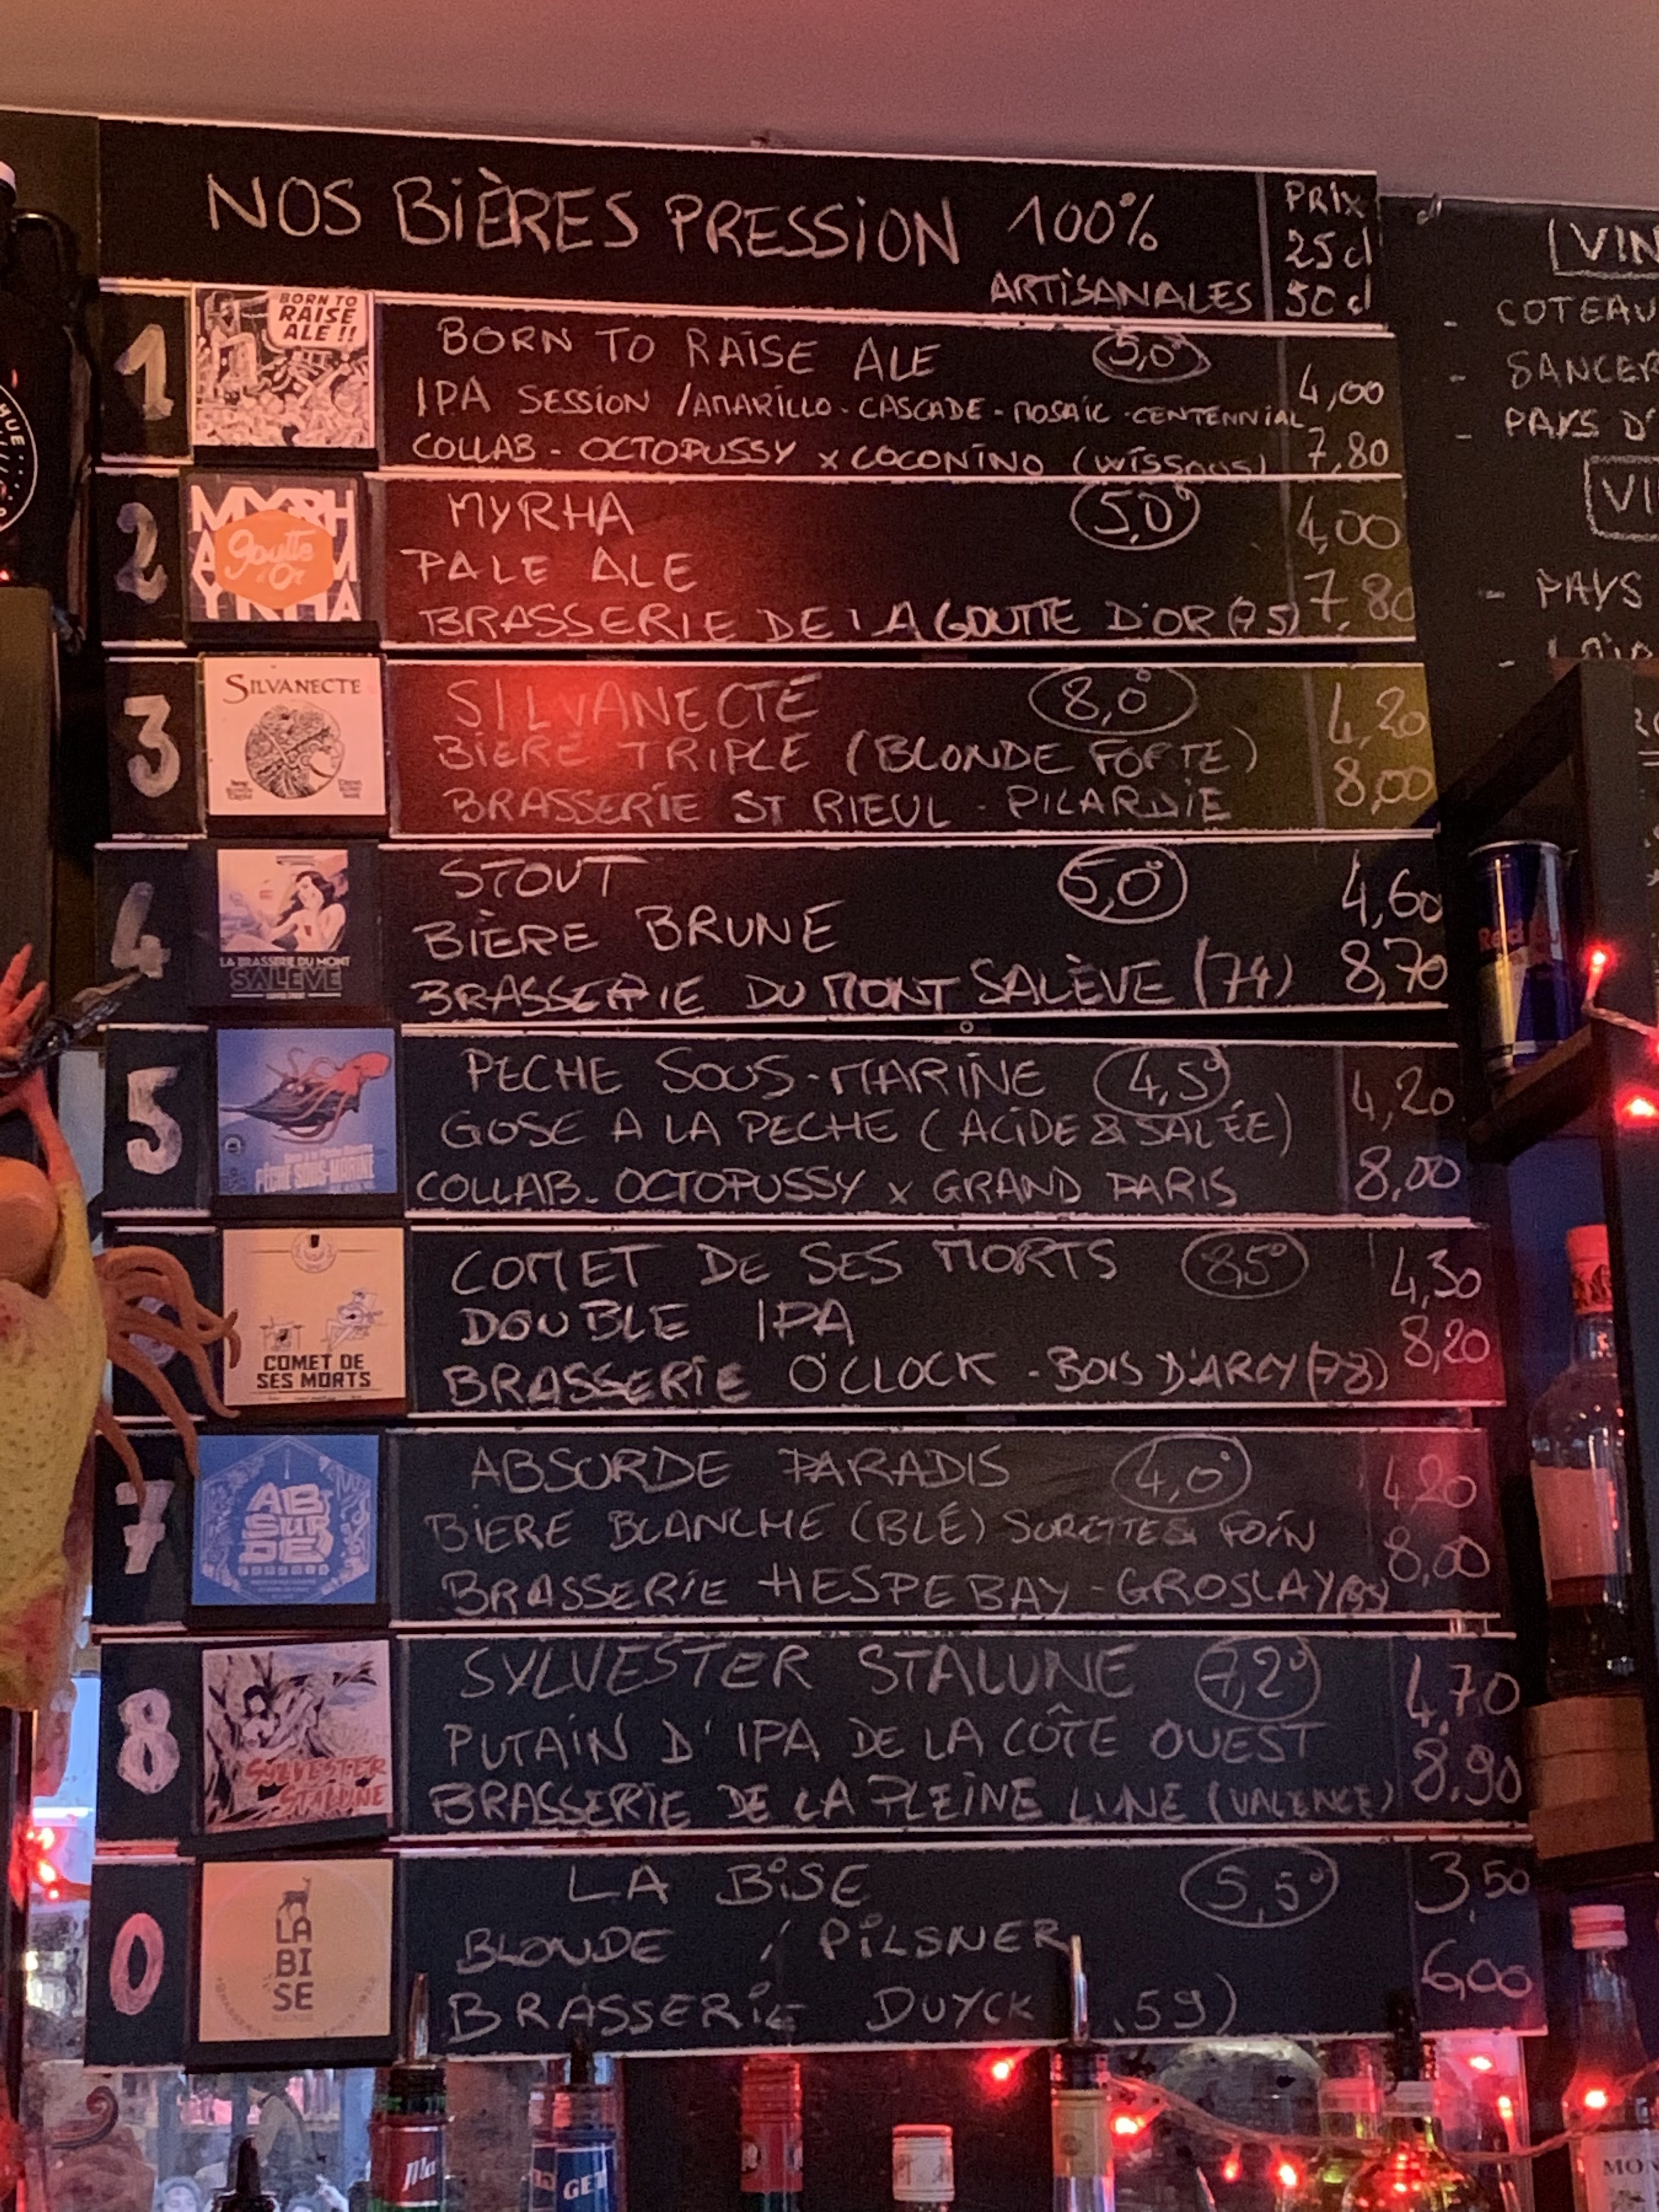 NOS BIÈRES PRESSION 100%
ARTISANALES
PRIX
25cl
50cl
1
BORN TO
RAISE
ALE !!
BORN TO RAISE ALE 5,0°
IPA SESSION / AMARILLO - CASCADE - MOSAIC - CENTENNIAL
COLLAB - OCTOPUSSY x COCONINO (WISSOUS)
4,00
7,80
2
MYRH
A M
YRHA
goutte
d'Or
MYRHA 5,0°
PALE ALE
BRASSERIE DE LA GOUTTE D'OR (75)
4,00
7,80
3
SILVANECTE
SILVANECTE 8,0°
BIERE TRIPLE (BLONDE FORTE)
BRASSERIE ST RIEUL - PICARDIE
4,20
8,00
4
LA BRASSERIE DU MONT
SALÈVE
STOUT 5,0°
BIÈRE BRUNE
BRASSERIE DU MONT SALÈVE (74)
4,60
8,70
5
PÊCHE SOUS-MARINE
PECHE SOUS-MARINE 4,5°
GOSE A LA PECHE (ACIDE & SALÉE)
COLLAB - OCTOPUSSY x GRAND PARIS
4,20
8,00
COMET DE
SES MORTS
COMET DE SES MORTS 8,5°
DOUBLE IPA
BRASSERIE O'CLOCK - BOIS D'ARCY (78)
4,30
8,20
7
AB
SUR
DE
PARADIS
ABSURDE PARADIS 4,0°
BIERE BLANCHE (BLÉ) SURETTE & FOIN
BRASSERIE HESPEBAY - GROSLAY (95)
4,20
8,00
8
SYLVESTER
STALUNE
SYLVESTER STALUNE 7,2°
PUTAIN D'IPA DE LA CÔTE OUEST
BRASSERIE DE LA PLEINE LUNE (VALENCE)
4,70
8,90
0
LA
BI
SE
LA BISE 5,5°
BLONDE / PILSNER
BRASSERIE DUYCK 59)
3,50
6,00
VIN
- COTEAU
- SANCER
- PAYS D'
VI
- PAYS
HUE
GET
MON